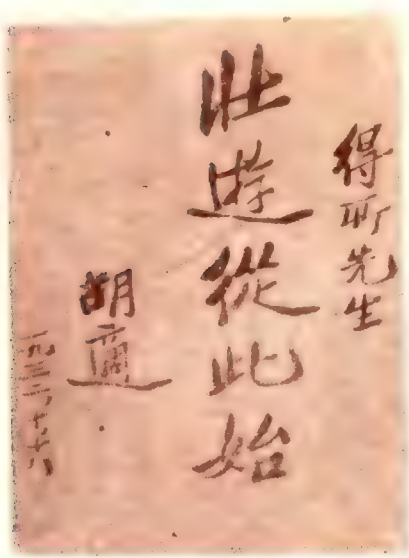 得所先生
壯遊從此始
胡適
一九三二,十,十六